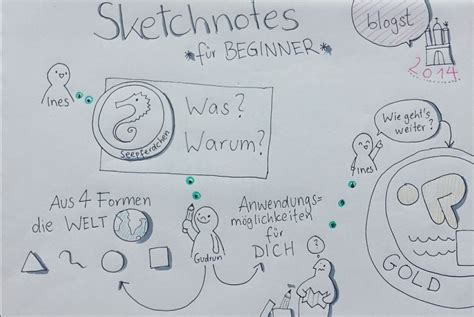 Sketchnotes
*für BEGINNER*
blogst
2014
Ines
Was?
Warum?
Seepferdchen
Wie geht's
weiter?
Ines
Aus 4 Formen
die WELT
Gudrun
Anwendungs=
möglichkeiten
für
DICH
?
GOLD